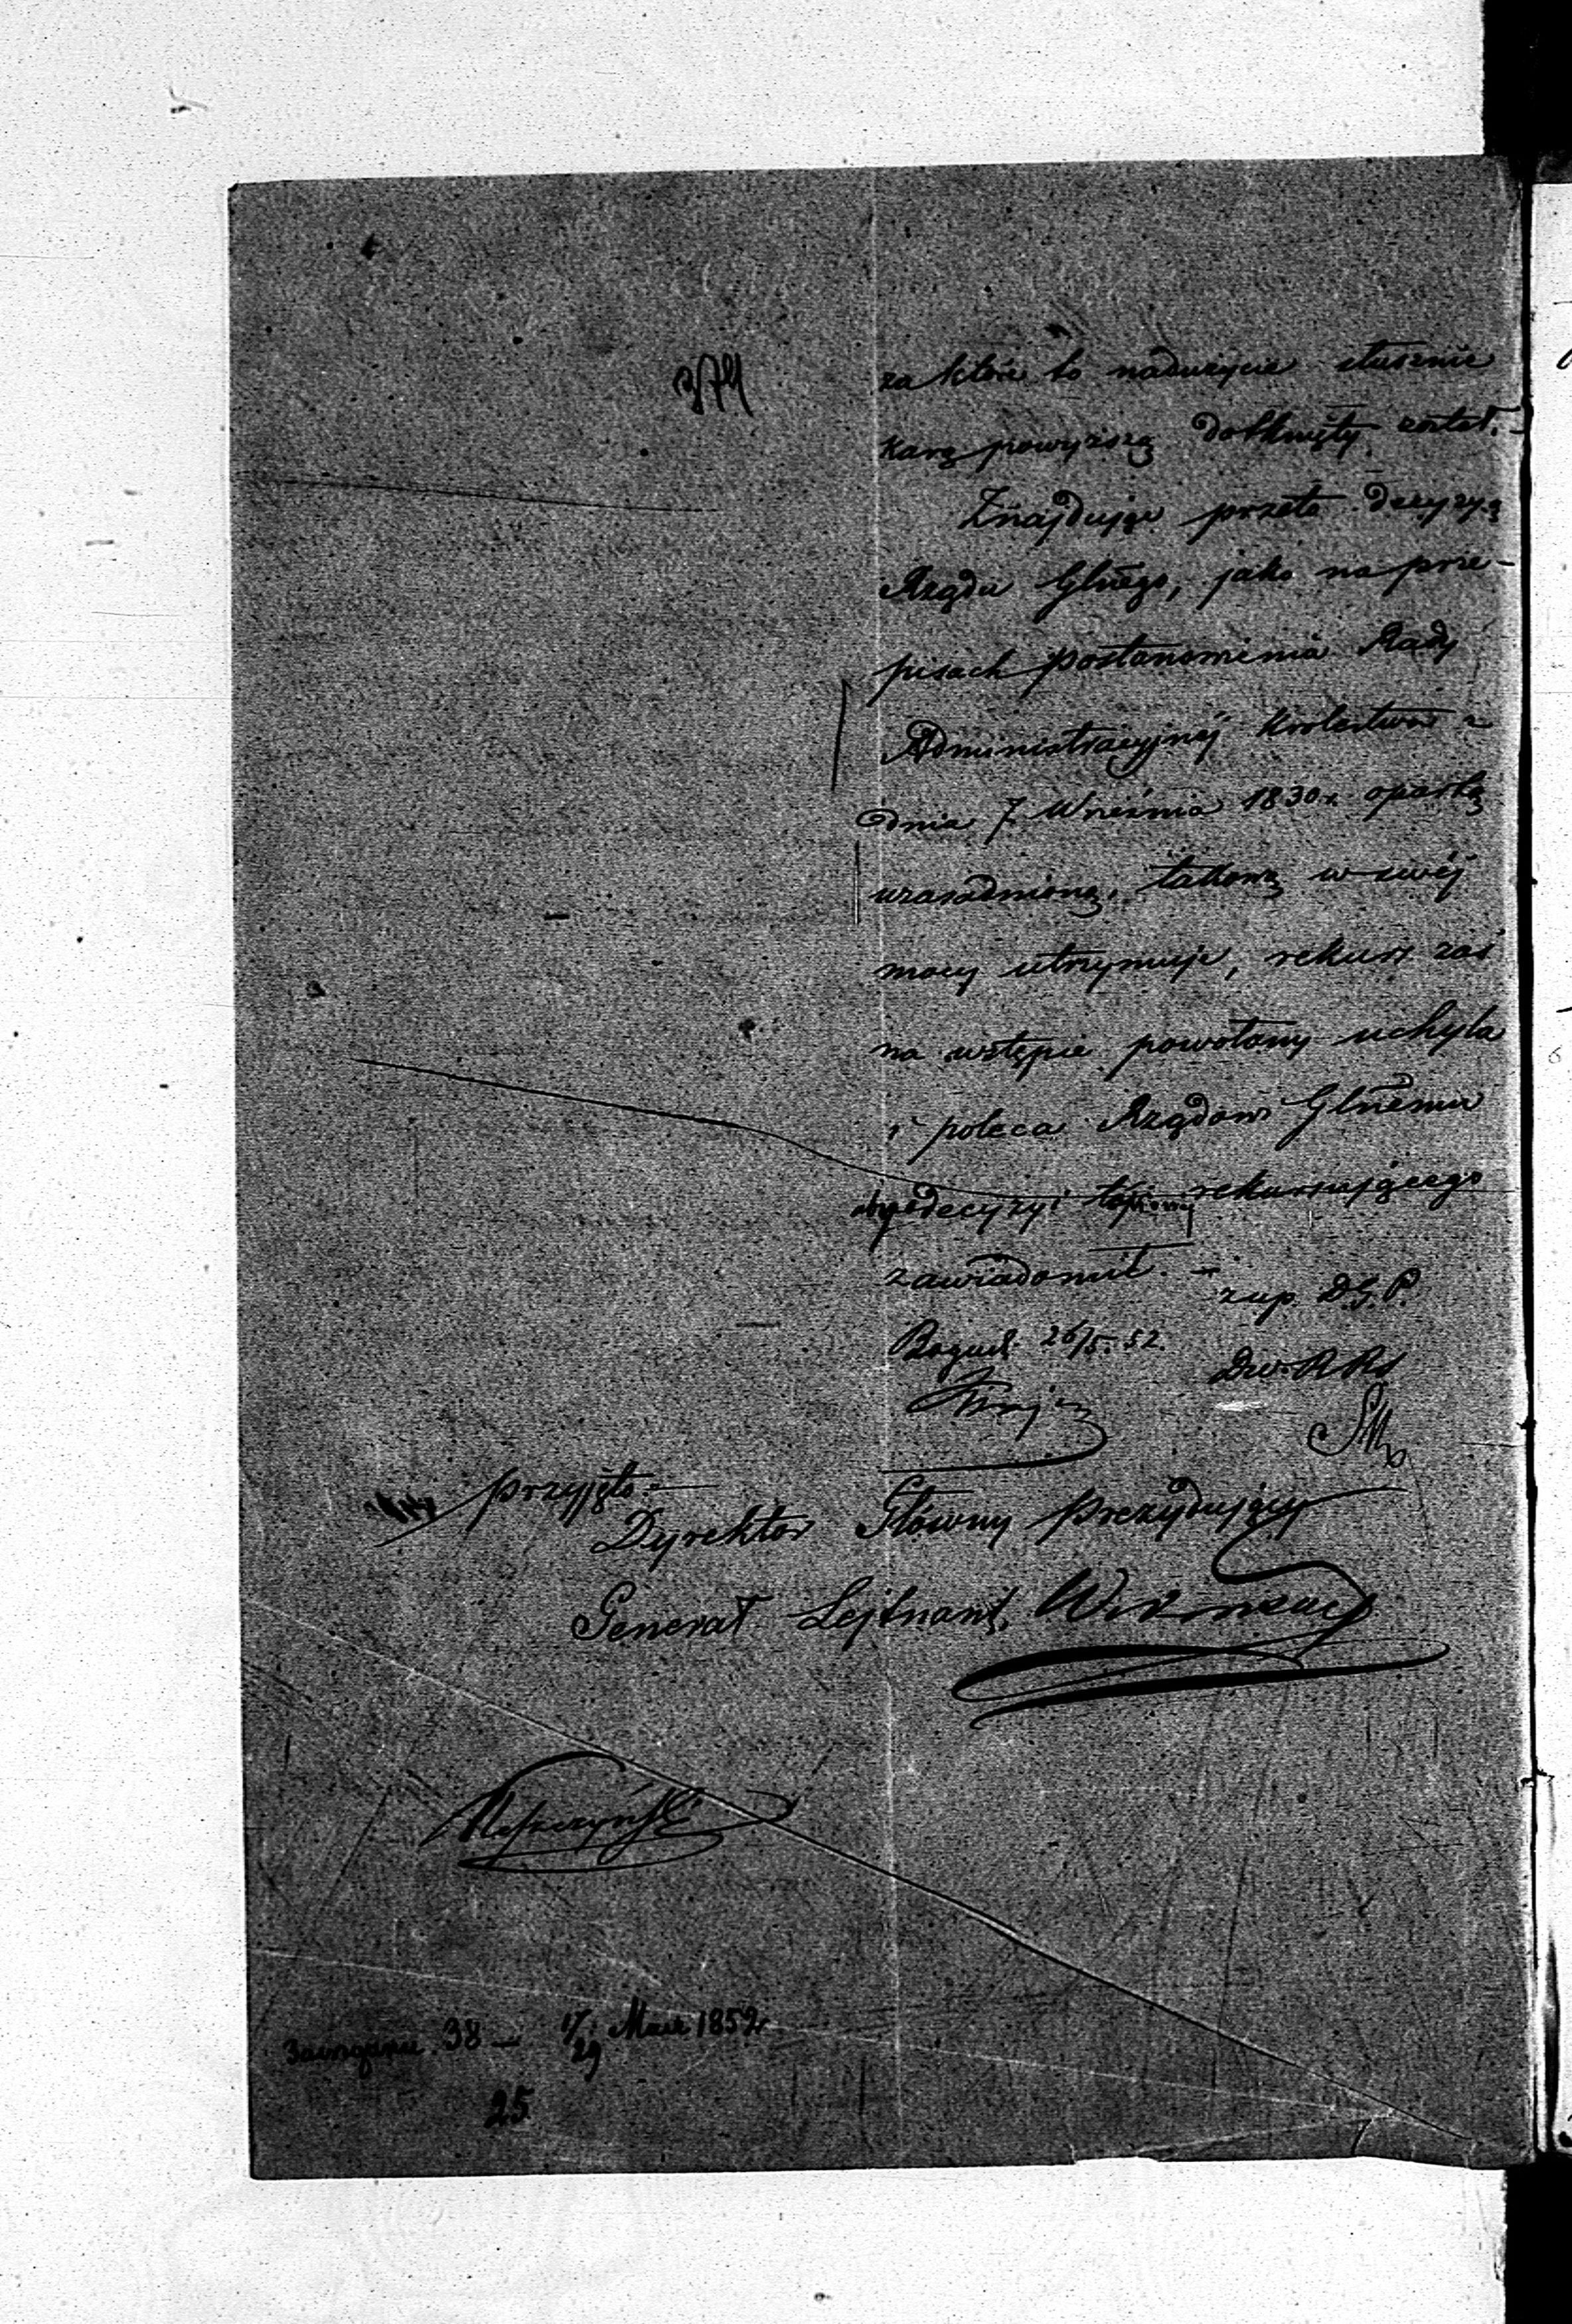 374
za które to nadużycie słusznie
karą powyższą dotknięty został. -
Znajdując przeto decyzyą
Rządu Glnego, jako na prze-
pisach Postanowienia Rady
Administracyjnéj Królestwa z
dnia 7 Września 1830 r. opartą
uzasadnioną, takową w swéj
mocy utrzymuje, rekurs zaś
na wstępie powołany uchyla
i poleca Rządowi Glnemu
aby o decyzyi rekursującego
zawiadomił. -
zup. D.G.P.
26/5. 52.
przyjęto.-
Dyrektor Główny Prezydujący
Generał Lejtnant,
38 - 17/29 Maia 1852
25